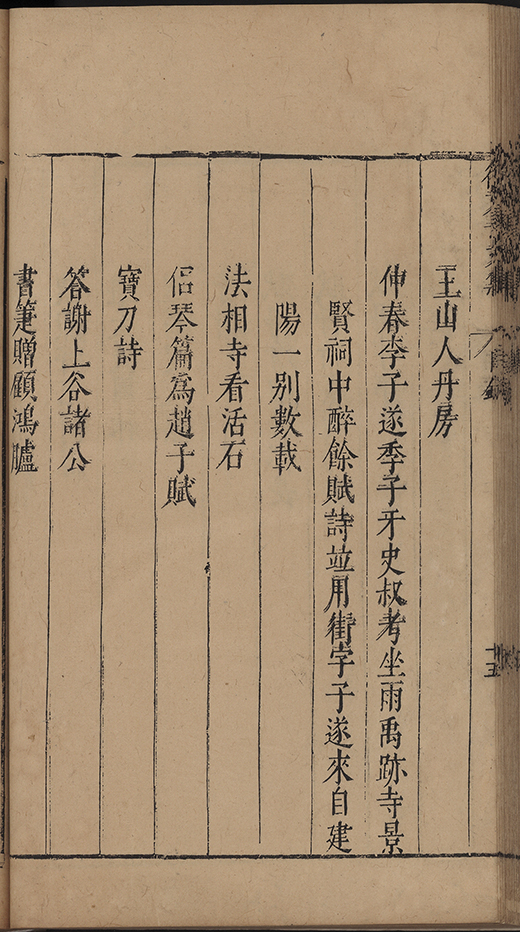 王山人丹房
仲春李子遂季子牙史叔考坐雨禹跡寺景
賢祠中醉餘賦詩並用街字子遂來自建
陽一別數載
法相寺看活石
侶琴篇爲趙子賦
寶刀詩
答謝上谷諸公
書箑贈顧鴻臚
十五